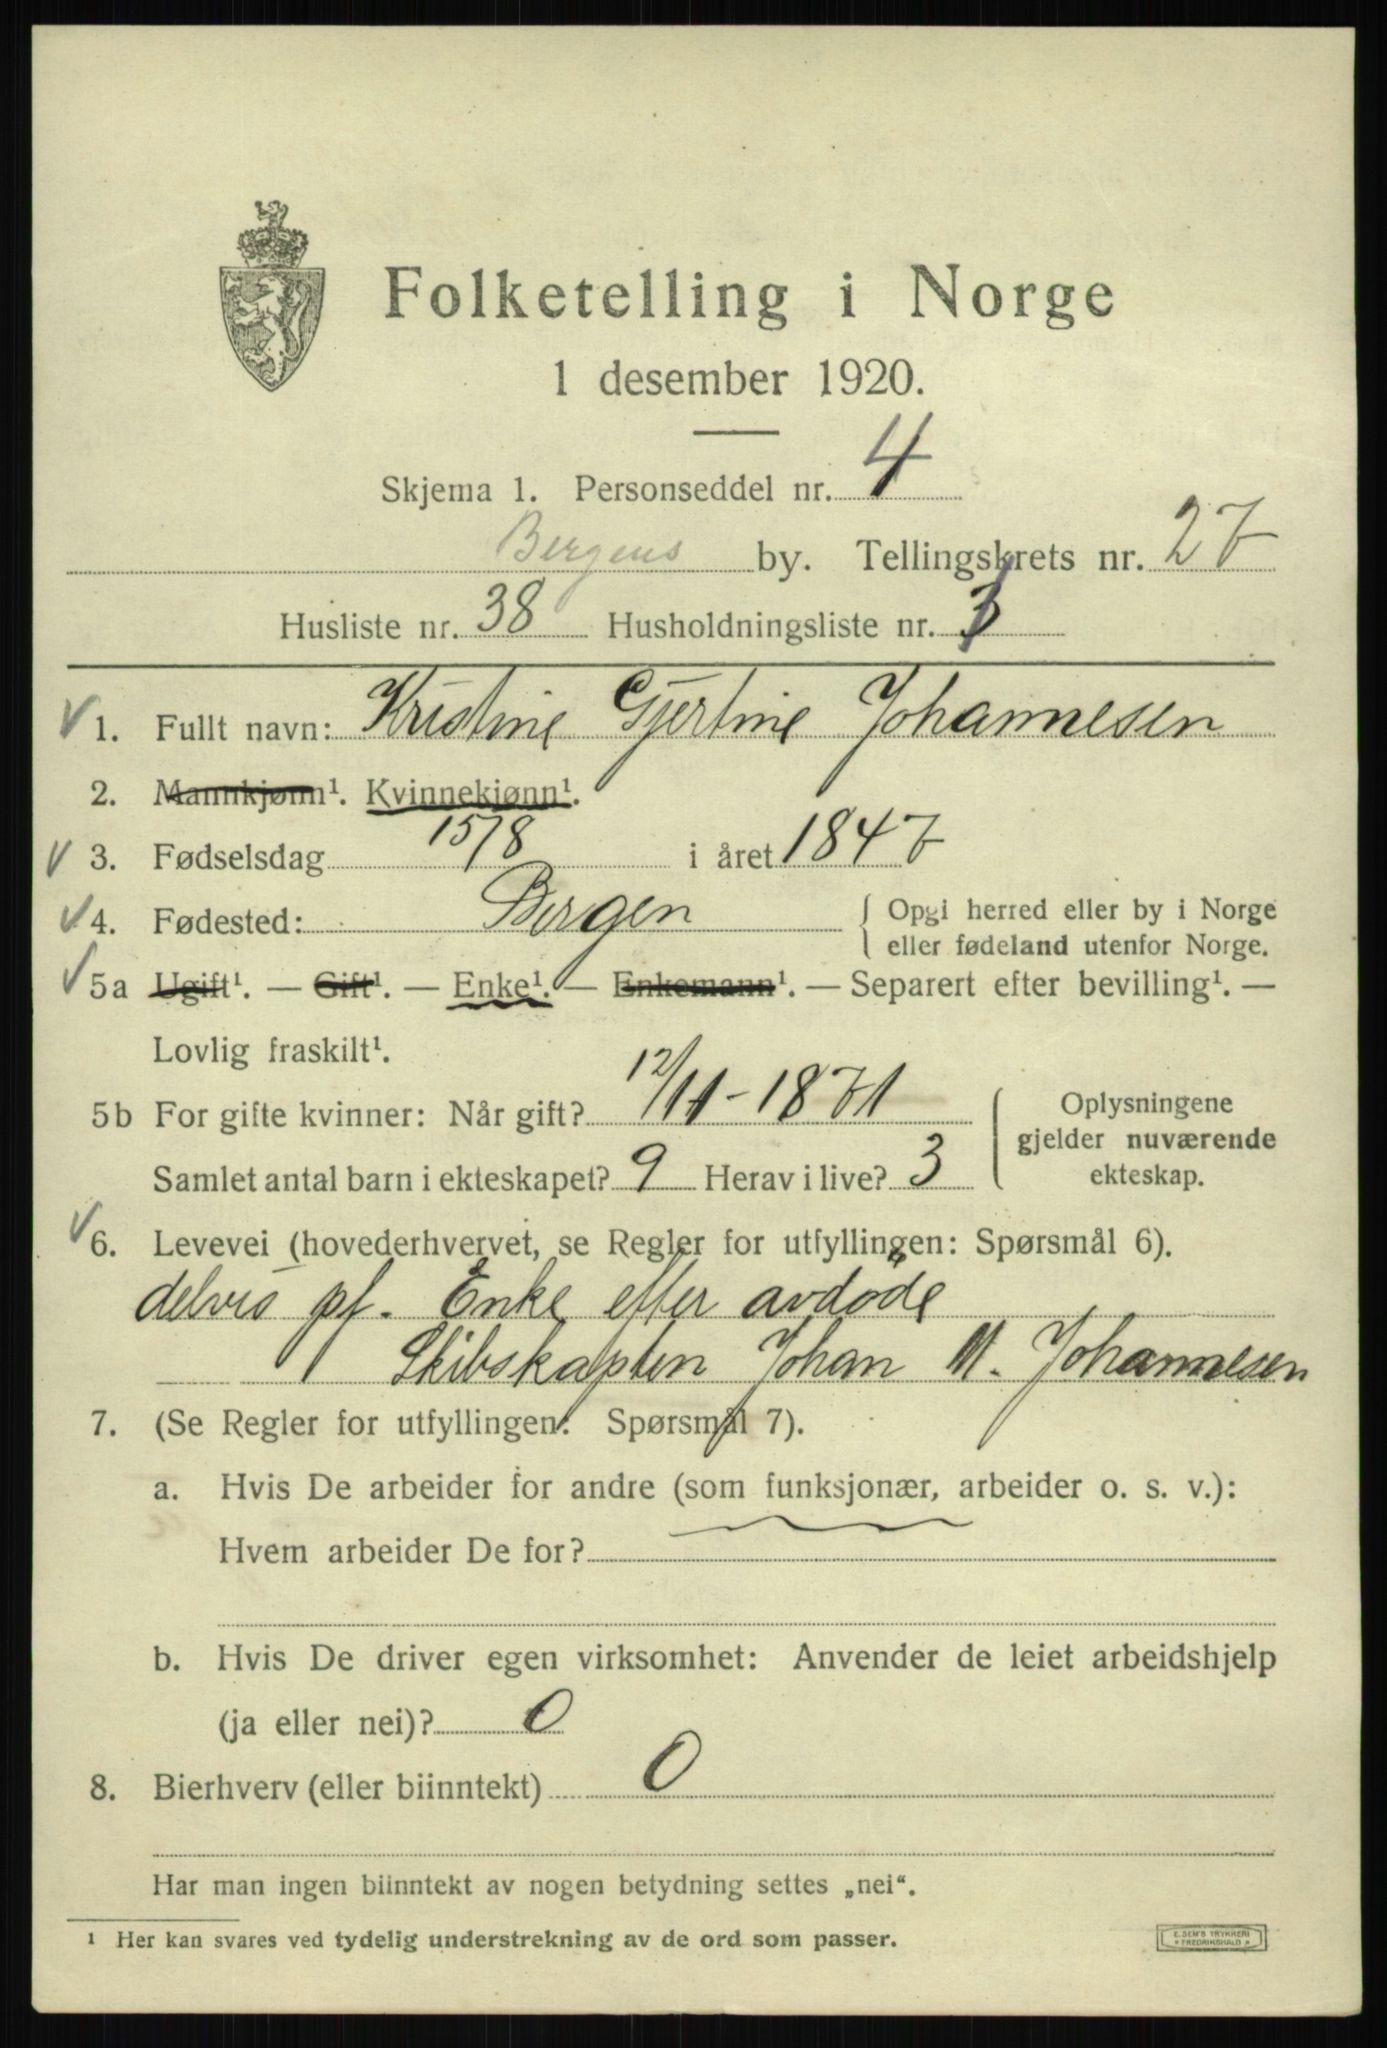 Folketelling i Norge
1 desember 1920.
Skjema 1. Personseddel nr. 4
Bergens by. Tellingskrets nr. 27
Husliste nr. 38 Husholdningsliste nr.
1. Fullt navn: Kristine Gjertine Johannesen
2. Mannkjønn¹. Kvinnekjønn¹.
3. Fødselsdag 15/8 i året 1847
4. Fødested: Bergen { Opgi herred eller by i Norge
eller fødeland utenfor Norge.
5a Ugift¹. — Gift¹. — Enke¹. — Enkemann¹. — Separert efter bevilling¹. —
Lovlig fraskilt¹.
5b For gifte kvinner: Når gift? 12/11-1871
Samlet antal barn i ekteskapet? 9 Herav i live? 3
{ Oplysningene
gjelder nuværende
ekteskap.
6. Levevei (hovederhvervet, se Regler for utfyllingen: Spørsmål 6).
delvis pf. Enke efter avdøde
Skibskaptein Johan M. Johannesen
7. (Se Regler for utfyllingen: Spørsmål 7).
a. Hvis De arbeider for andre (som funksjonær, arbeider o. s. v.):
Hvem arbeider De for?
b. Hvis De driver egen virksomhet: Anvender de leiet arbeidshjelp
(ja eller nei)? 0
8. Bierhverv (eller biinntekt) 0
Har man ingen biinntekt av nogen betydning settes „nei“.
¹ Her kan svares ved tydelig understrekning av de ord som passer.
E. SEM'S TRYKKERI
* FREDRIKSHALD *